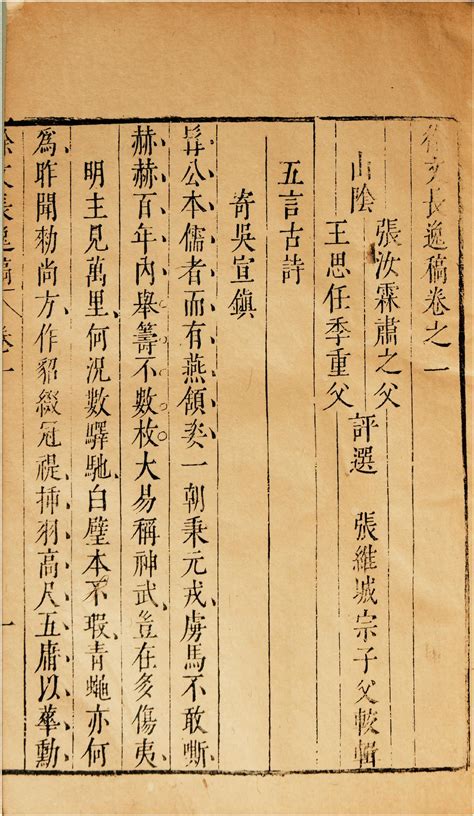 徐文長逸稿卷之一
山陰
張汝霖肅之父
王思任季重父
評選
張維城宗子父較輯
五言古詩
寄吳宣鎮
公本儒者而有燕頷姿一朝秉元戎虜馬不敢嘶
赫赫百年內舉籌不數枚大易稱神武豈在多傷夷
明主見萬里何況數驛馳白璧本不瑕青蠅亦何
爲昨聞勑尚方作貂綴冠禔揷羽高尺五庸以華勳
徐文長逸稿
卷一
一